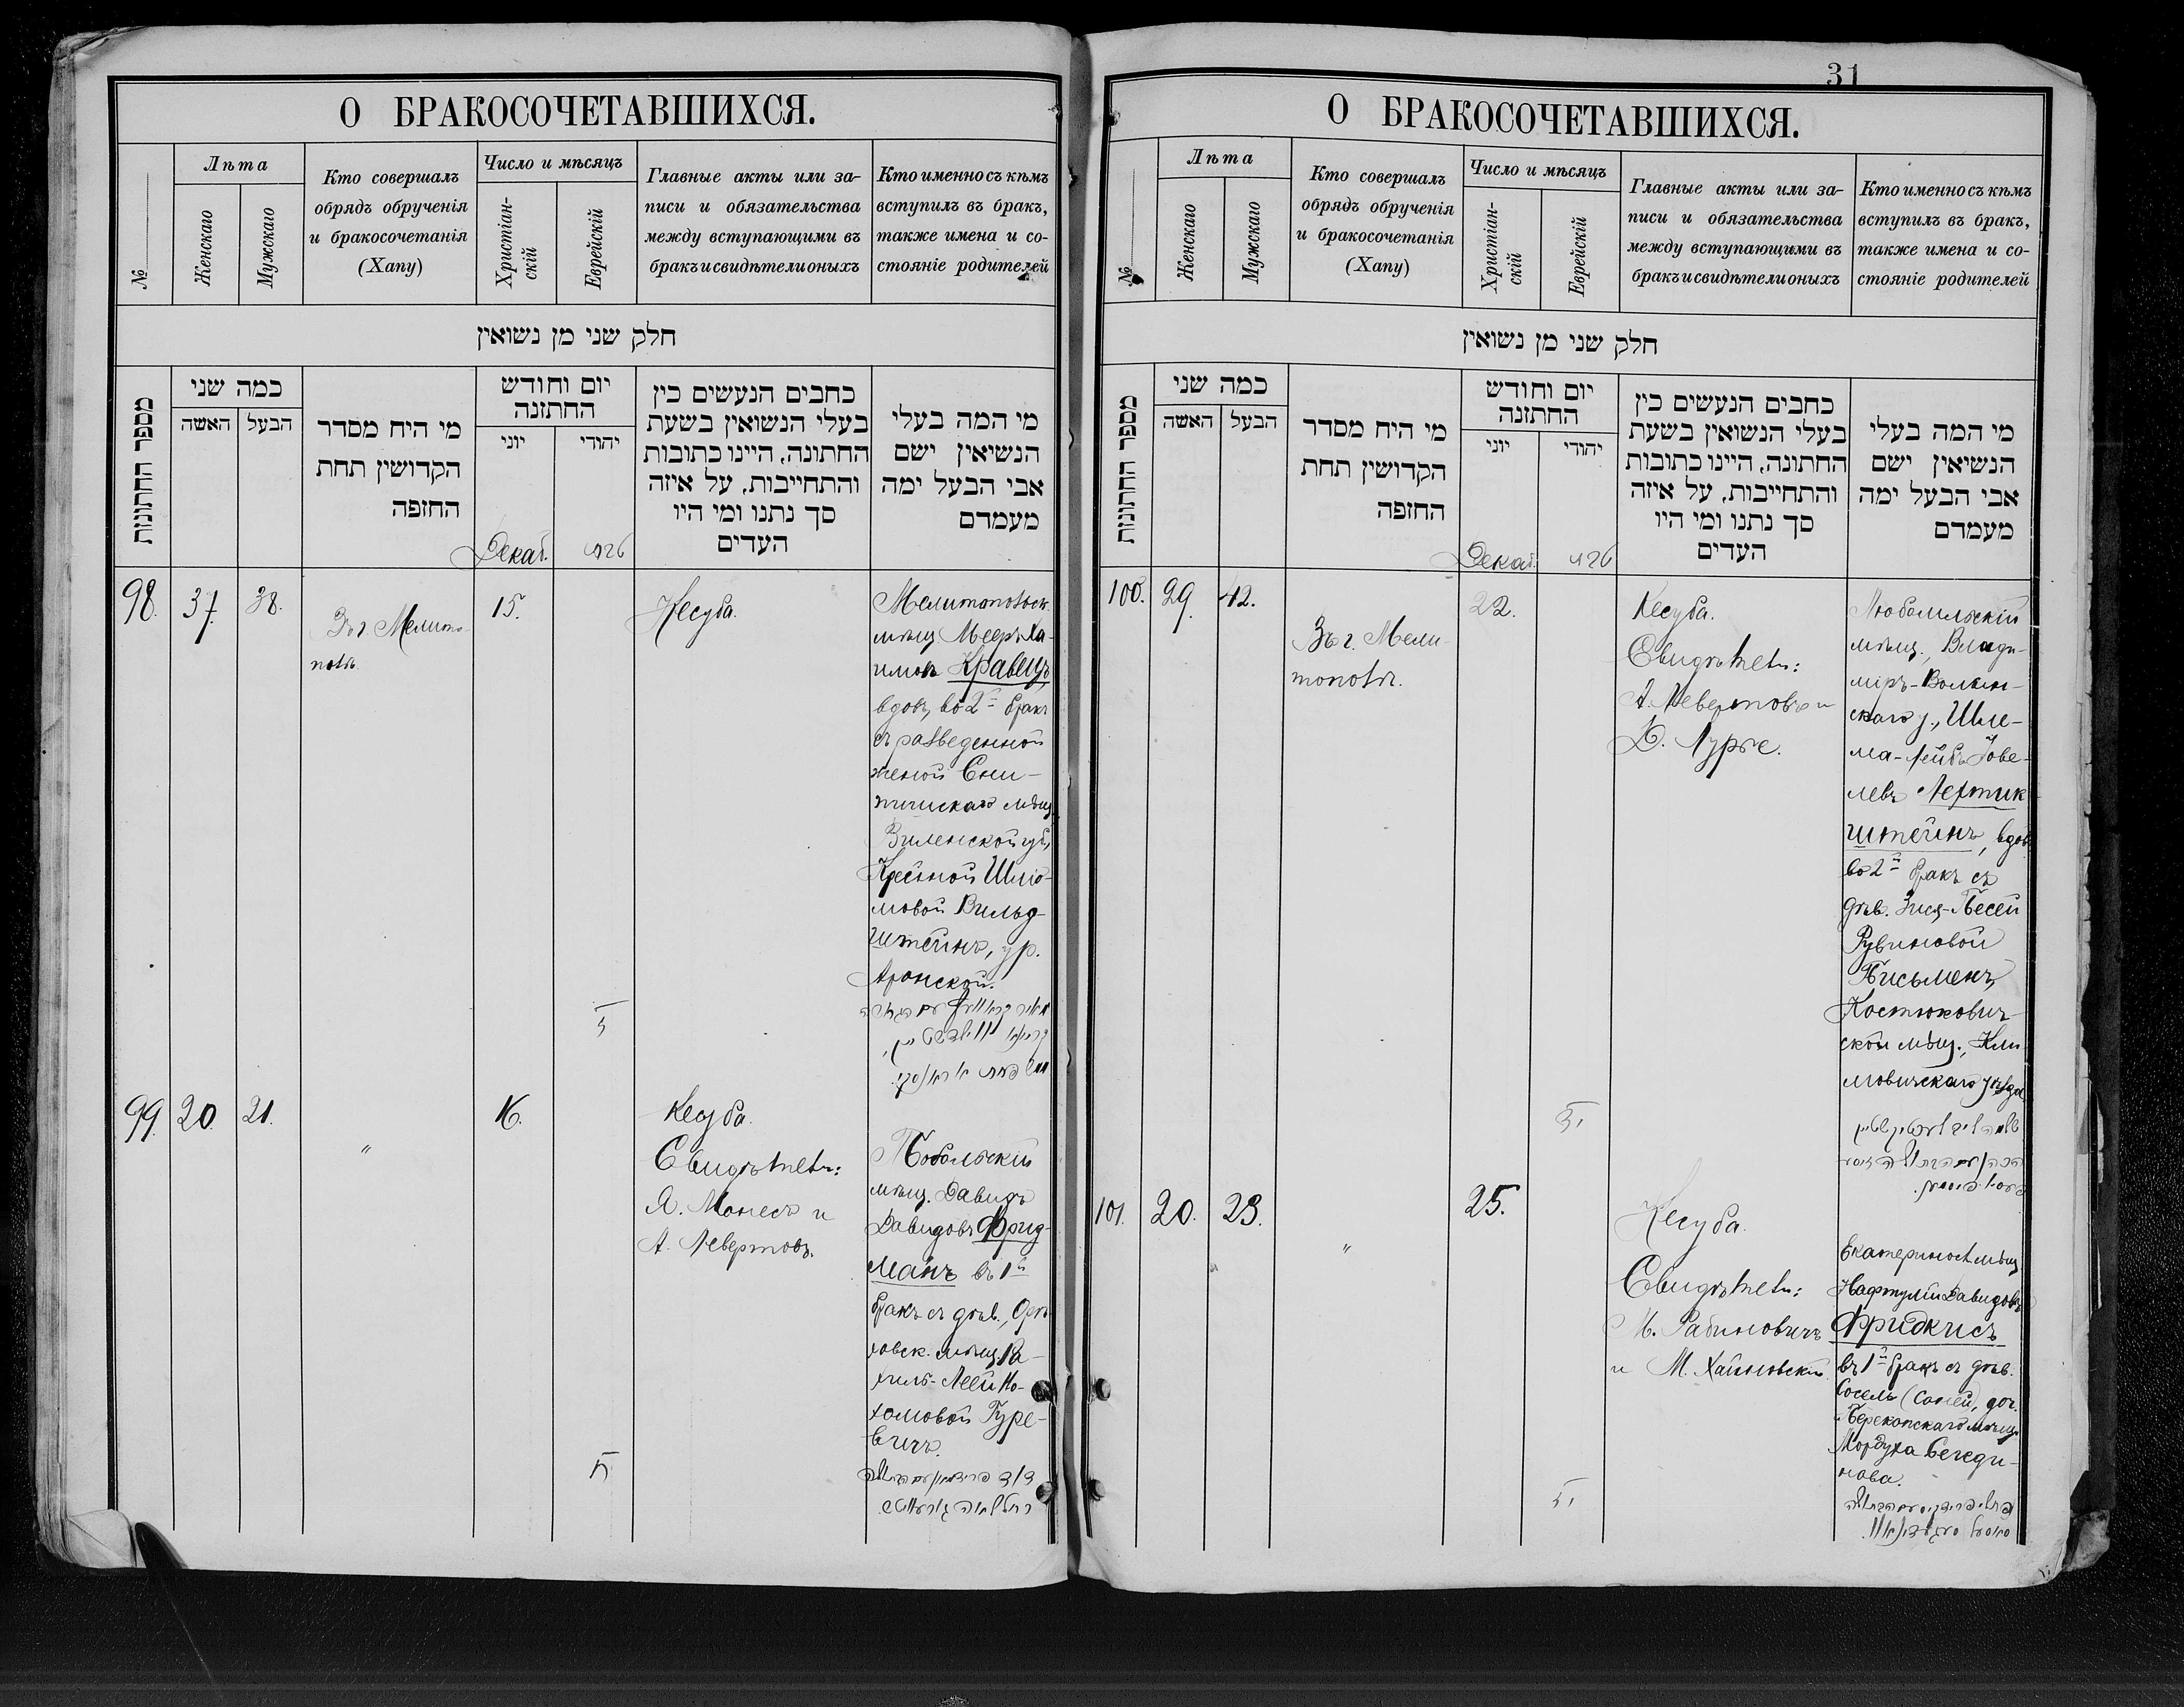 О БРАКОСОЧЕТАВШИХСЯ.
№
Лѣта
Женскаго
Мужскаго
Кто совершалъ
обрядъ обрученія
и бракосочетанія
(Хапу)
Число и мѣсяцъ
Христіан-
скій
Еврейскій
Главные акты или за-
писи и обязательства
между вступающими въ
бракъ и свидѣтели оныхъ
Кто именно съ кѣмъ
вступилъ въ бракъ,
также имена и со-
стояніе родителей
חלק שני מן נשואין
מספר החתונות
כמה שני
האשה
הבעל
מי היח מסדר
הקדושין תחת
החזפה
יום וחודש
החתזנה
יוני
יהודי
Декаб.
כחבים הנעשים כין
בעלי הנשואין בשעת
החתונה, היינו כתובות
והתחייבות, על איזה
סך נתנו ומי היו
העדים
מי המה בעלי
הנשיאין ישם
אבי הבעל ימה
מעמדם
98. 37. 38.
Въ г. Мелито-
полѣ.
15.
Кесуба.
Мелитопольск.
мѣщ. Мееръ Ха-
имовъ Кравецъ,
вдов., во 2й бракъ
съ разведенной
женой Сни-
пишскаго мѣщ.
Виленской губ.
Крейной Шлио-
мовой Вильд-
штейнъ, ур.
Аронской.
ז
99. 20. 21.
"
16.
Кесуба.
Свидѣтели:
Я. Монесъ и
А. Левертовъ.
мѣщ. Давидъ
Давидовъ Фрид-
манъ въ 1й
бракъ съ дѣв., Орѣ-
ховск. мѣщ. Ра-
хиль-Леей Но-
хомовой Гуре-
вичъ.
ח
31
О БРАКОСОЧЕТАВШИХСЯ.
№
Лѣта
Женскаго
Мужскаго
Кто совершалъ
обрядъ обрученія
и бракосочетанія
(Хапу)
Число и мѣсяцъ
Христіан-
скій
Еврейскій
Главные акты или за-
писи и обязательства
между вступающими въ
бракъ и свидѣтели оныхъ
Кто именно съ кѣмъ
вступилъ въ бракъ,
также имена и со-
стояніе родителей
חלק שני מן נשואין
מספר החתונות
כמה שני
האשה
הבעל
מי היח מסדר
הקדושין תחת
החזפה
יום וחודש
החתזנה
יוני
יהודי
Декаб.
כחבים הנעשים כין
בעלי הנשואין בשעת
החתונה, היינו כתובות
והתחייבות, על איזה
סך נתנו ומי היו
העדים
מי המה בעלי
הנשיאין ישם
אבי הבעל ימה
מעמדם
100. 29. 42.
Въ г. Мели-
тополѣ.
22.
Кесуба.
Свидѣтели:
А. Левертовъ и
Д. Лурье.
Любомльскій
мѣщ., Влади-
міръ-Волын-
скаго у., Шле-
ма-Лейбъ Іове-
левъ Лехтик-
штейнъ, вдов.
во 2й бракъ съ
дѣв. Песей
Рувиновой
Письменъ,
Костюкович-
ской мѣщ., Кли-
мовичскаго уѣзда
101. 20. 23.
"
25.
Кесуба.
Свидѣтели:
И. Рабиновичъ
и М. Хайновскій.
Екатериносл. мѣщ.
Нафтулій Давидовъ
Фридкисъ
въ 1й бракъ съ дѣв.
Сосель (Соней), доч.
Перекопскаго мѣщ.
Мордуха Бегеди-
нова.